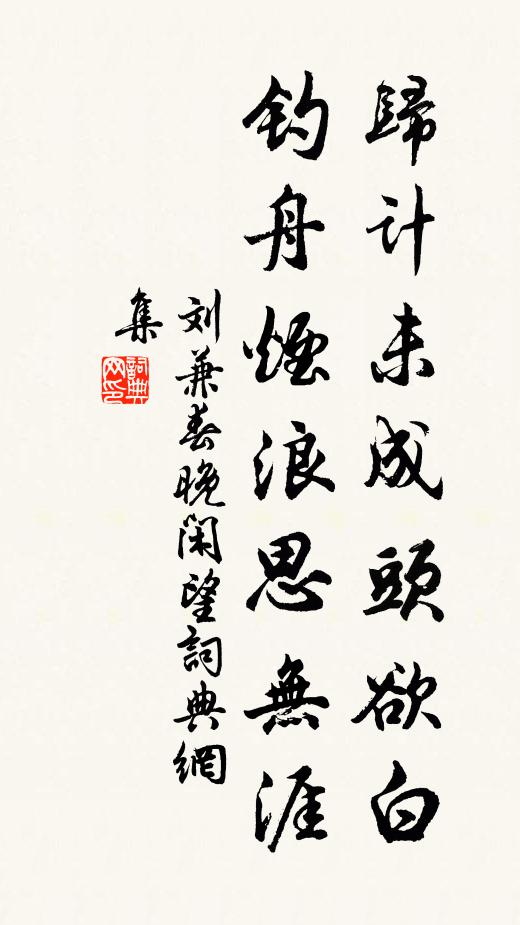 歸計未成頭欲白
釣舟煙浪思無涯
刘兼春晚閑望詞典網
集
詞典
网印